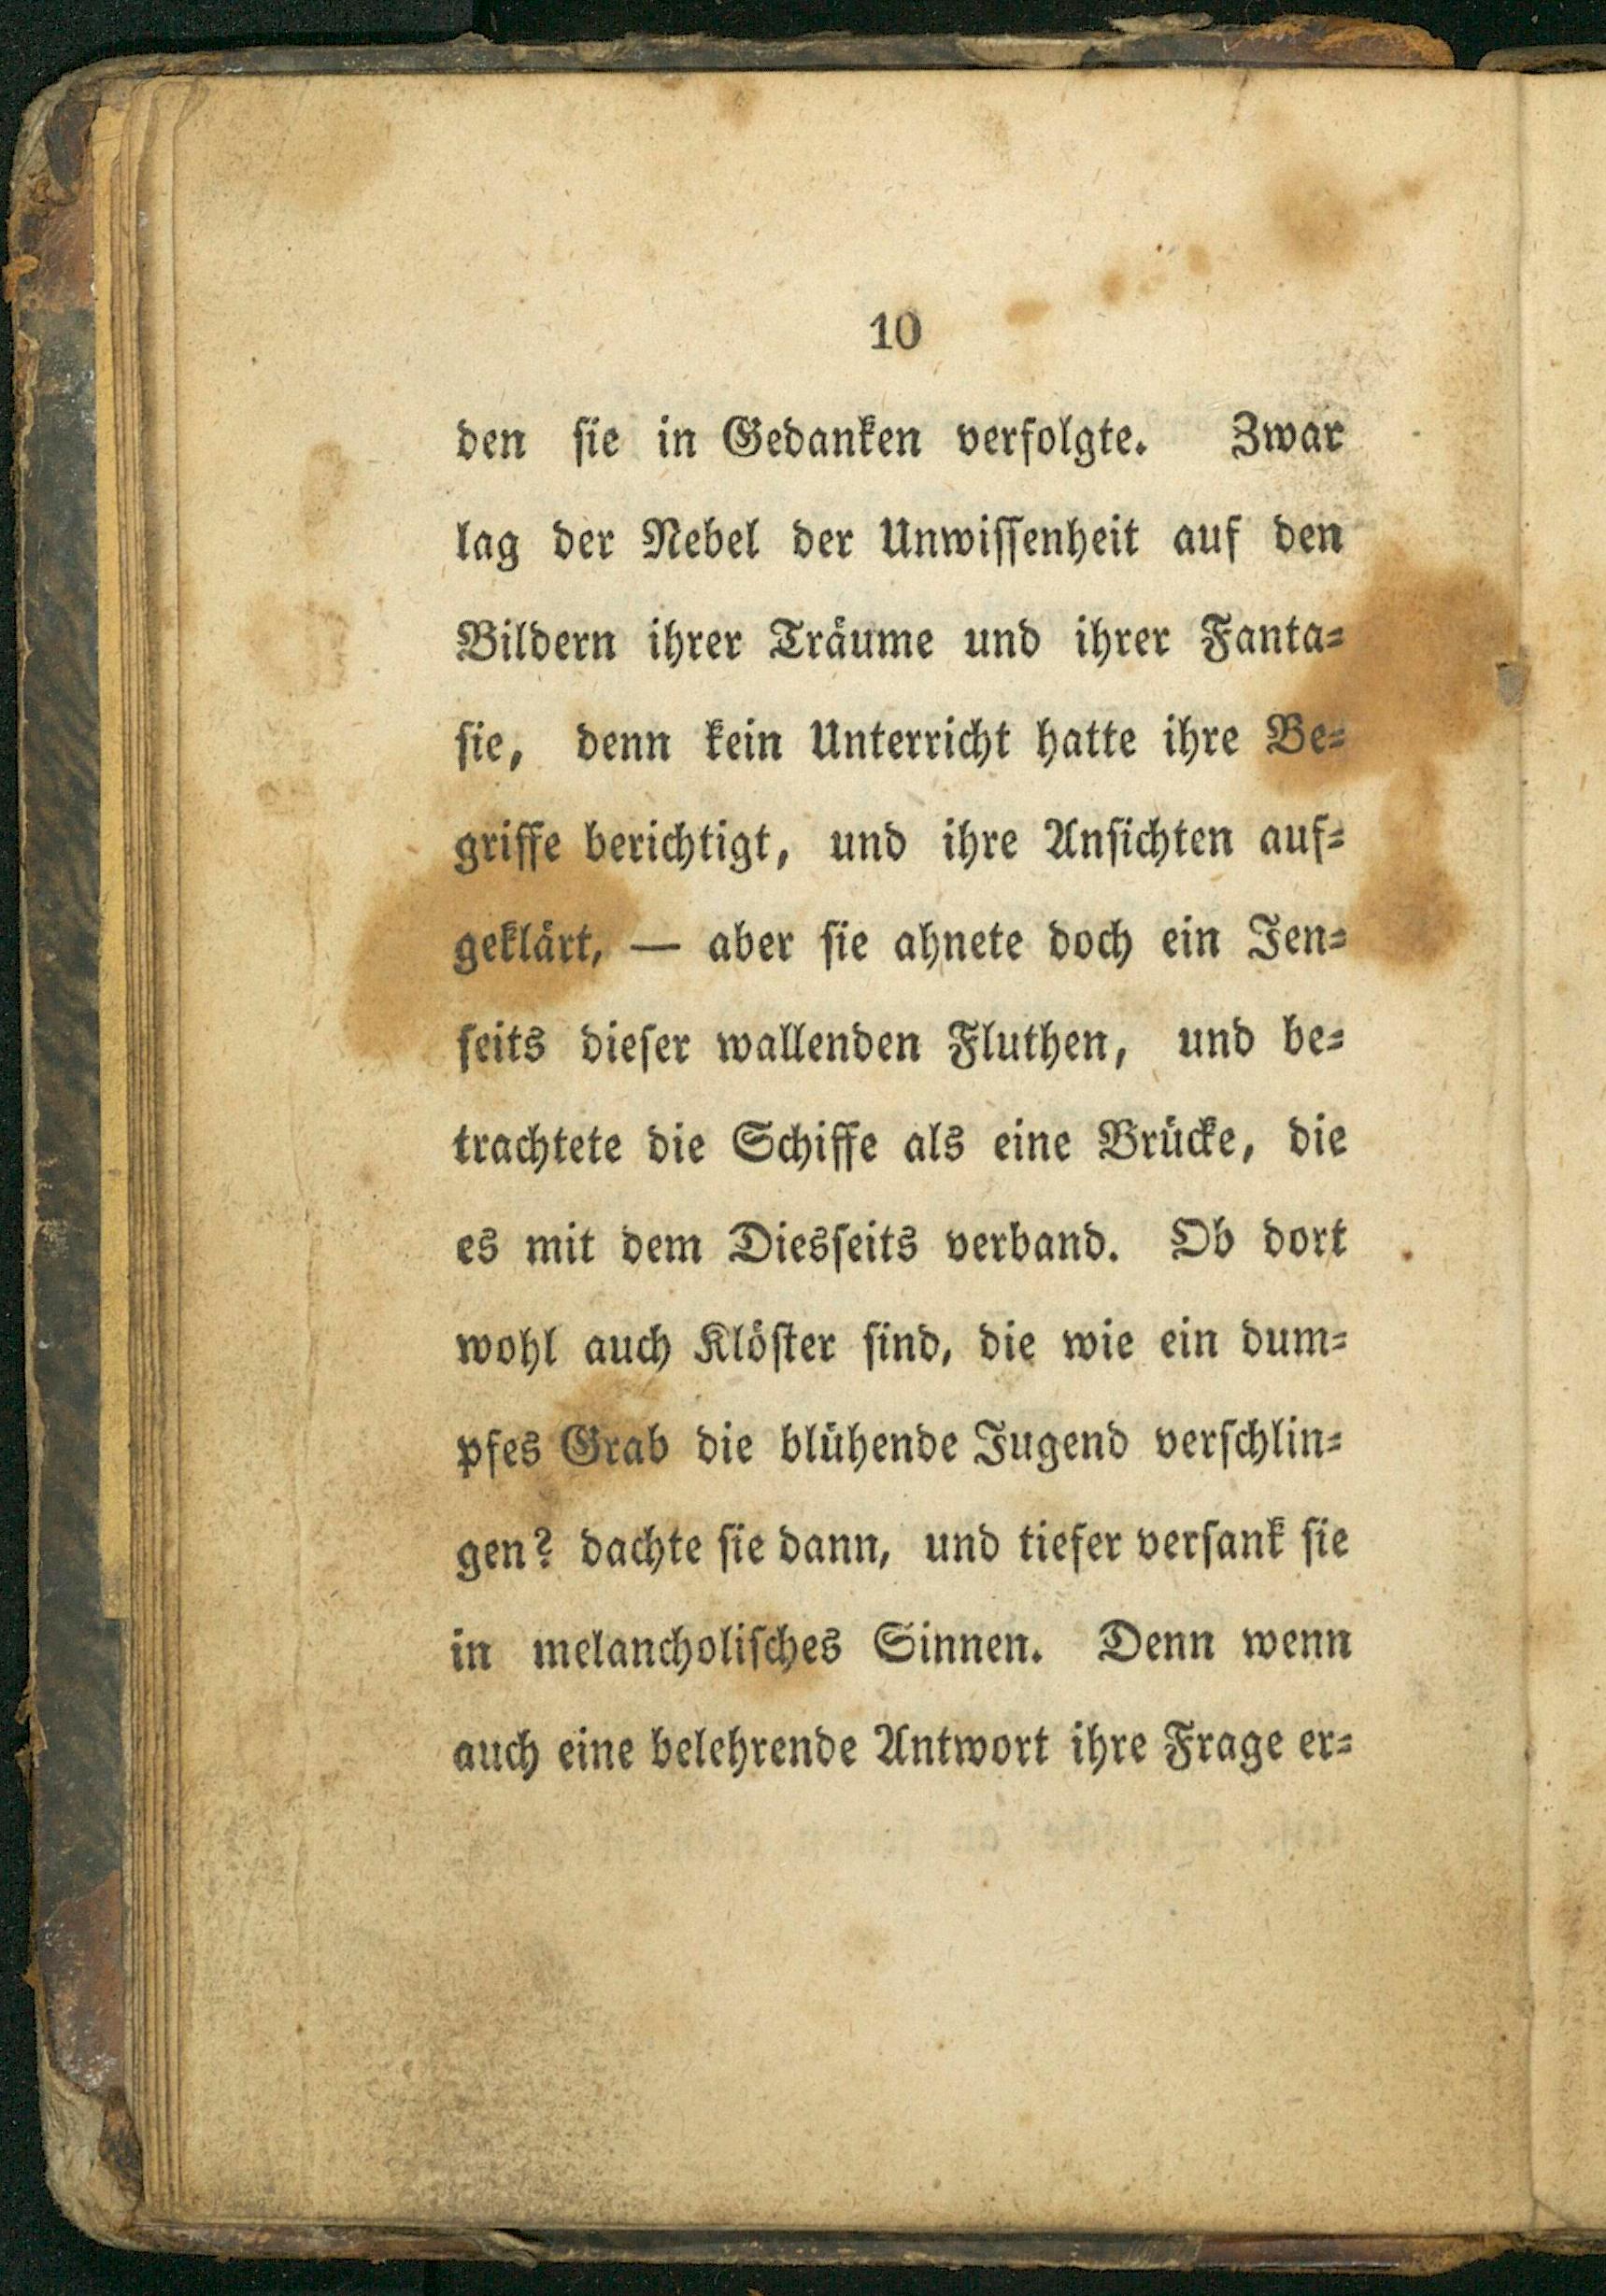 10
den sie in Gedanken verfolgte. Zwar
lag der Nebel der Unwissenheit auf den
Bildern ihrer Träume und ihrer Fanta-
sie, denn kein Unterricht hatte ihre Be-
griffe berichtigt, und ihre Ansichten auf-
geklärt, — aber sie ahnete doch ein Jen-
seits dieser wallenden Fluthen, und be-
trachtete die Schiffe als eine Brücke, die
es mit dem Diesseits verband. Ob dort
wohl auch Klöster sind, die wie ein dum-
pfes Grab die blühende Jugend verschlin-
gen? dachte sie dann, und tiefer versank sie
in melancholisches Sinnen. Denn wenn
auch eine belehrende Antwort ihre Frage er-